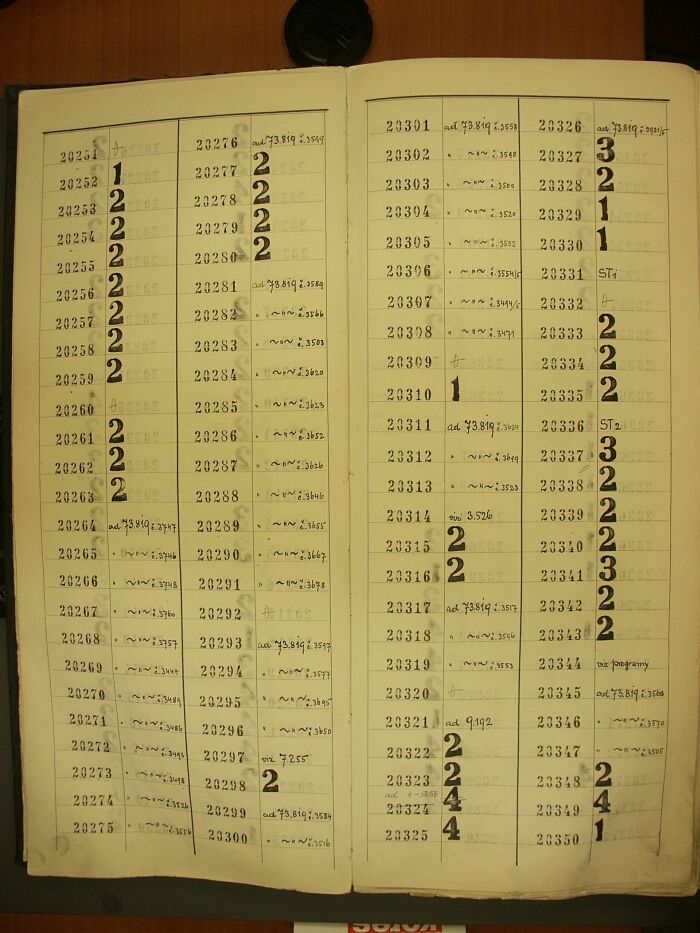 20251 A
20252 1
20253 2
20254 2
20255 2
20256 2
20257 2
20258 2
20259 2
20260 A
20261 2
20262 2
20263 2
20264 ad 73.819 č.3747
20265 " ~"~ č.3746
20266 " ~"~ č.3748
20267 " ~"~ č.3760
20268 " ~"~ č.3757
20269 " ~"~ č.3444
20270 " ~"~ č.3489
20271 " ~"~ č.3486
20272 " ~"~ č.3493
20273 " ~"~ č.3498
20274 " ~"~ č.3526
20275 " ~"~ č.3556
20276 ad 73.819 č.3549
20277 2
20278 2
20279 2
20280 2
20281 ad 73.819 č.3589
20282 " ~"~ č.3566
20283 " ~"~ č.3503
20284 " ~"~ č.3620
20285 " ~"~ č.3623
20286 " ~"~ č.3652
20287 " ~"~ č.3626
20288 " ~"~ č.3646
20289 " ~"~ č.3655
20290 " ~"~ č.3667
20291 " ~"~ č.3678
20292 A
20293 ad 73.819 č.3597
20294 " ~"~ č.3577
20295 " ~"~ č.3695
20296 " ~"~ č.3650
20297 viz 7.255
20298 2
20299 ad 73.819 č.3584
20300 " ~"~ č.3516
20301 ad 73.819 č.3558
20302 " ~"~ č.3548
20303 " ~"~ č.3500
20304 " ~"~ č.3520
20305 " ~"~ č.3502
20306 " ~"~ č.3554/5
20307 " ~"~ č.3494/5
20308 " ~"~ č.3471
20309 A
20310 1
20311 ad 73.819 č.3634
20312 " ~"~ č.3649
20313 " ~"~ č.3523
20314 viz 3.526
20315 2
20316 2
20317 ad 73.819 č.3517
20318 " ~"~ č.3596
20319 " ~"~ č.3553
20320 A
20321 ad 9.192
20322 2
20323 2
ad 4-5656
20324 4
20325 4
20326 ad 73.819
20327 3
20328 2
20329 1
20330 1
20331 ST1
20332 A
20333 2
20334 2
20335 2
20336 ST2
20337 3
20338 2
20339 2
20340 2
20341 3
20342 2
20343 2
20344 viz programy
20345 ad 73.819 č.3568
20346 " ~"~ č.3570
20347 " ~"~ č.3505
20348 2
20349 4
20350 1